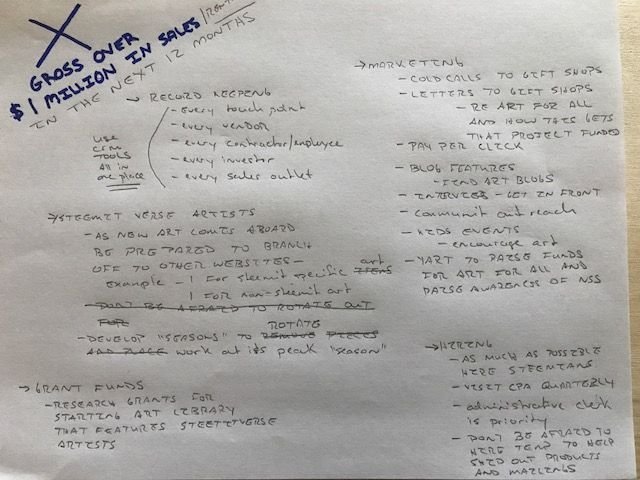 GROSS OVER
$1 MILLION IN SALES/
IN THE NEXT 12 MONTHS
→ RECORD KEEPING
- every touch point
- every vendor
- every contractor/employee
- every investor
- every sales outlet
use
crm
TOOLS
All in
one place
→ STEEMIT VERSE ARTISTS
- AS NEW ART COMES ABOARD
BE PREPARED TO BRANCH
OFF TO OTHER WEBSITES -
example - 1 For steemit specific ITEMS art
1 FOR non-steemit art
- DON'T BE AFRAID TO ROTATE OUT
FOR
- DEVELOP "SEASONS" TO REMOVE PIECES ROTATE
AND PLACE work at its peak "season"
→ GRANT FUNDS
- RESEARCH GRANTS FOR
STARTING ART LIBRARY
THAT FEATURES STEEMITVERSE
ARTISTS
→ MARKETING
- COLD CALLS TO GIFT SHOPS
- LETTERS TO GIFT SHOPS
- RE ART FOR ALL
AND HOW THIS GETS
THAT PROJECT FUNDED
- PAY PER CLICK
- BLOG FEATURES
- FIND ART BLOGS
- INTERVIEWS - GET IN FRONT
- Communit out reach
- KIDS EVENTS
- encourage art
- YART TO RAISE FUNDS
FOR ART FOR ALL AND
RAISE AWARENESS OF NSS
→ HIRING
- AS MUCH AS POSSIBLE
HIRE STEEMIANS
- VISIT CPA QUARTERLY
- administrative clerk
is priority
- DON'T BE AFRAID TO
HIRE TEMP TO HELP
SHIP OUT PRODUCTS
AND MAILINGS